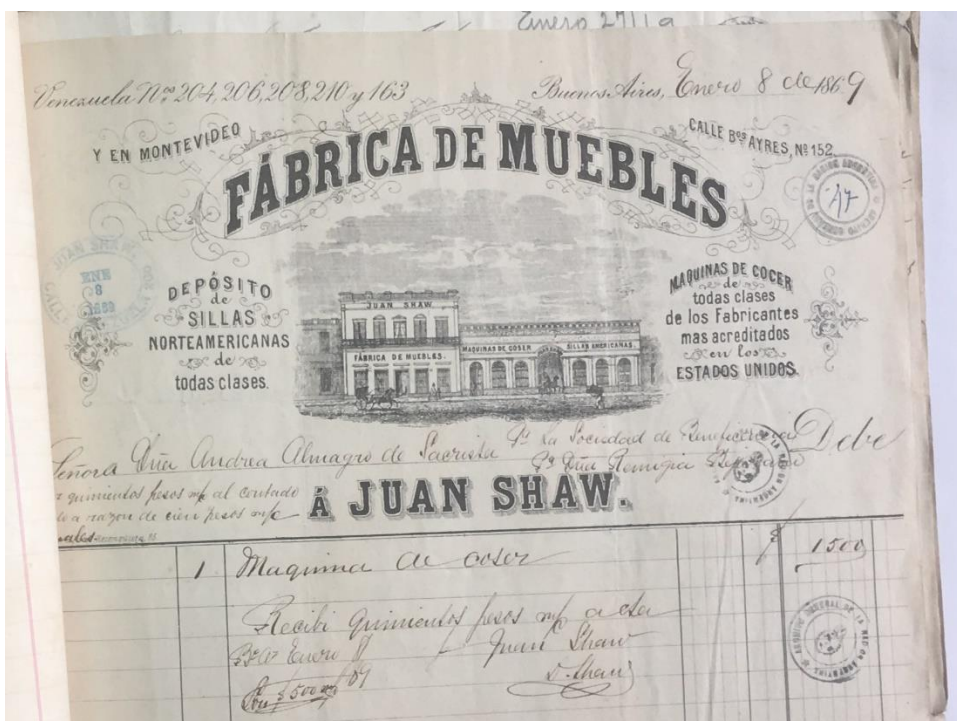 Enero 27
Venezuela Nos 204, 206, 208, 210 y 163
Buenos Aires, Enero 8 de 1869
Y EN MONTEVIDEO
CALLE Bos AYRES, No 152.
FÁBRICA DE MUEBLES
47
JUAN SHAW
ENE
8
DEPÓSITO
de
SILLAS
NORTEAMERICANAS
de
todas clases.
JUAN SHAW
FÁBRICA DE MUEBLES.
MAQUINAS DE COSER
SILLAS AMERICANAS.
MAQUINAS DE COCER
de
todas clases
de los Fabricantes
mas acreditados
en los
ESTADOS UNIDOS.
Señora Dña Andrea Almagro de Sacrista
Pr La Sociedad de Beneficencia
Pr Dña Remigia
Debe
quinientos pesos m/c al contado
a razon de cien pesos m/c
Á JUAN SHAW.
1 Maquina de coser $ 1500
Recibi quinientos pesos m/c a cta
Bs As Enero 8/69
Juan Shaw
Son $ 500 m/c
D. Shaw
ARCHIVO GENERAL DE LA NACION ARGENTINA